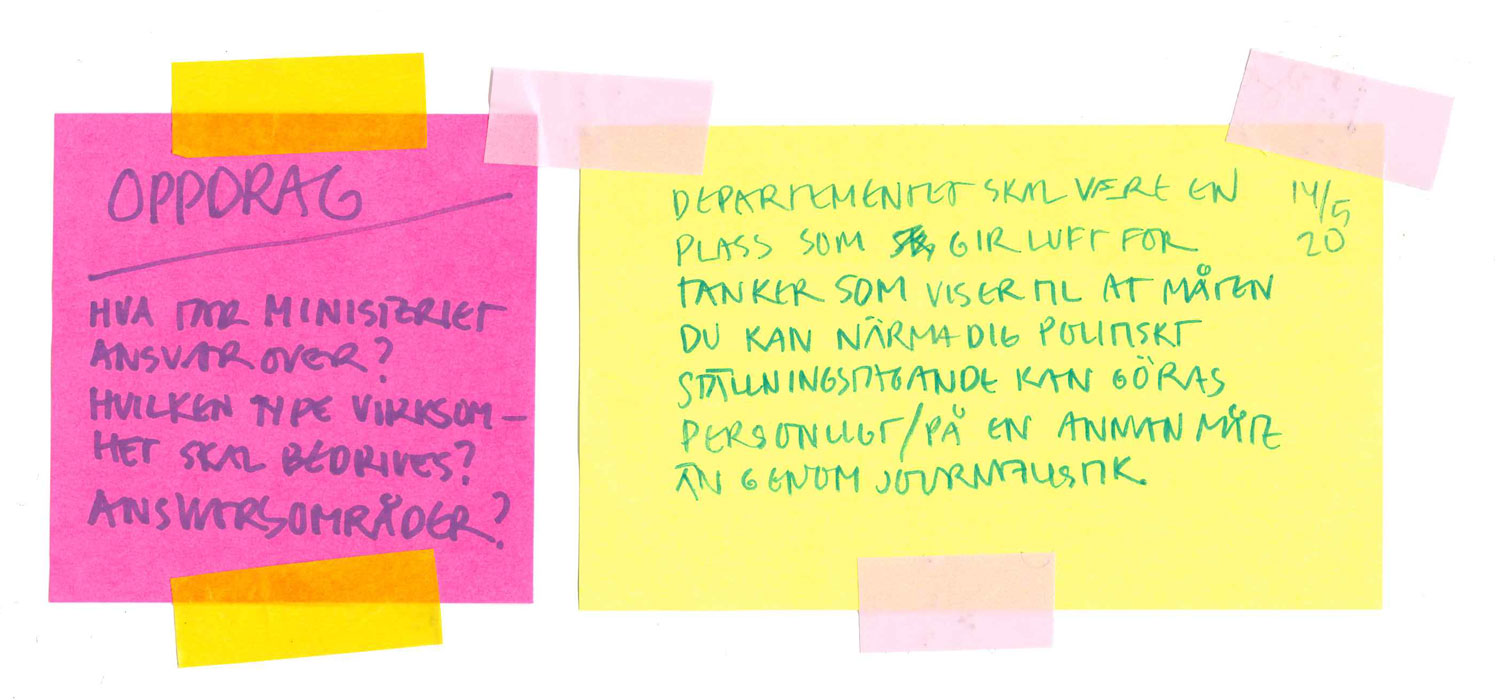 OPPDRAG
HVA TAR MINISTERIET
ANSVAR OVER?
HVILKEN TYPE VIRKSOM-
HET SKAL BEDRIVES?
ANSVARSOMRÅDER?
DEPARTEMENTET SKAL VÆRE EN
PLASS SOM GIR LUFT FOR
TANKER SOM VISER TIL AT MÅTEN
DU KAN NÄRMA DIG POLITISKT
STÄLLNINGSTAGANDE KAN GÖRAS
PERSONLIGT/PÅ EN ANNAN MÅTE
ÄN GENOM JOURNALISTIK.
14/5
20